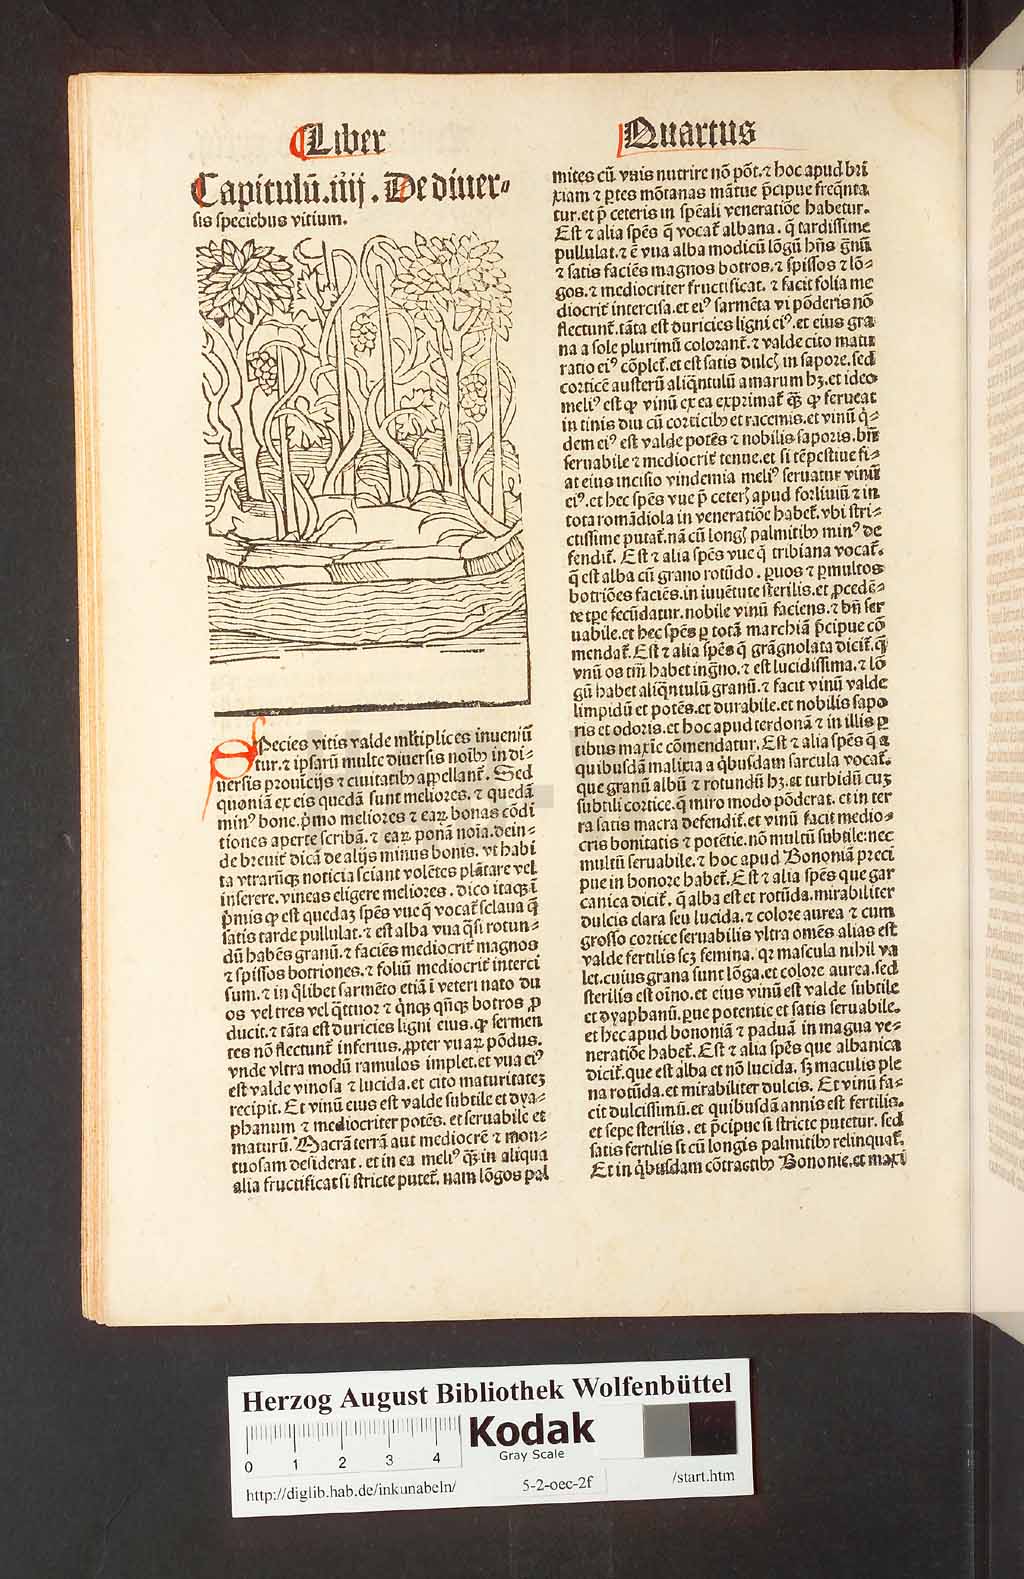 Liber
Quartus
Capitulū.iiij. De diuer-
sis speciebus vitium.
Species vitis valde mltiplices inueniū
tur.⁊ ipsarū multe diuersis noībꝫ in di-
uersis prouincijs ⁊ ciuitatibꝫ appellant̄. Sed
quoniā ex eis quedā sunt meliores. ⁊ quedā
minꝰ bone. p̄mo meliores ⁊ eaꝝ bonas cōdi
tiones aperte scribā. ⁊ eaꝝ ponā noīa. dein-
de breuit̄ dicā de alijs minus bonis. vt habi
ta vtrarūqꝫ noticia sciant volētes plātare vel
inserere. vineas eligere meliores. dico itaqꝫ ī
p̄mis ꝙ est quedaꝫ spēs vue q̄ vocat̄ sclaua q̄
satis tarde pullulat. ⁊ est alba vua q̄si rotun-
dū habēs granū. ⁊ faciēs mediocrit̄ magnos
⁊ spissos botriones. ⁊ foliū mediocrit̄ interci
sum. ⁊ in q̄libet sarmēto etiā ī veteri nato du
os vel tres vel q̄ttuor ⁊ q̄nqꝫ qn̄qꝫ botros ꝓ
ducit. ⁊ tāta est duricies ligni eius. ꝙ sermen
tes nō flectunt̄ inferius. ꝓpter vuaꝝ pōdus.
vnde vltra modū ramulos implet. et vua eiꝰ
est valde vinosa ⁊ lucida. et cito maturitateꝫ
recipit. Et vinū eius est valde subtile et dya-
phanum ⁊ mediocriter potēs. et seruabile et
maturū. Macrā terrā aut mediocrē ⁊ mon-
tuosam desiderat. et in ea meliꝰ qꝫ in aliqua
alia fructificat si stricte putet̄. nam lōgos pal
mites cū vuis nutrire nō pōt. ⁊ hoc apud bri
xiam ⁊ ꝑtes mōtanas mātue p̄cipue freq̄nta
tur. et p̄ ceteris in spēali veneratiōe habetur.
Est ⁊ alia spēs q̄ vocat̄ albana. q̄ tardissime
pullulat. ⁊ ē vua alba modicū lōgū hn̄s grnū
⁊ satis faciēs magnos botros. ⁊ spissos ⁊ lō-
gos. ⁊ mediocriter fructificat. ⁊ facit folia me
diocrit̄ intercisa. et eiꝰ sarmēta vi pōderis nō
flectunt̄. tāta est duricies ligni eiꝰ. et eius gra
na a sole plurimū colorant̄. ⁊ valde cito matu
ratio eiꝰ cōplet̄. et est satis dulcꝭ in sapore. sed
corticē austerū aliq̄ntulū amarum hꝫ. et ideo
meliꝰ est ꝙ vinū ex ea exprimat̄ qꝫ ꝙ ferueat
in tinis diu cū corticibꝫ et racemis. et vinū q̄-
dem eiꝰ est valde potēs ⁊ nobilis saporis. bn̄
seruabile ⁊ mediocrit̄ tenue. et si tēpestiue fi-
at eius incisio vindemia meliꝰ seruatur vinū
eiꝰ. et hec spēs vue p̄ ceterꝭ apud forliuiū ⁊ in
tota romādiola in veneratiōe habet̄. vbi stri-
ctissime putat̄. nā cū longꝭ palmitibꝫ minꝰ de
fendit̄. Est ⁊ alia spēs vue q̄ tribiana vocat̄.
q̄ est alba cū grano rotūdo. ꝑuos ⁊ ꝑmultos
botriōes faciēs. in iuuētute sterilis. et ꝓcedē-
te tp̄e fecūdatur. nobile vinū faciens. ⁊ bn̄ ser
uabile. et hec spēs ꝑ totā marchiā p̄cipue cō
mendat̄. Est ⁊ alia spēs q̄ grāgnolata dicit̄. q̄
vnū os tm̄ habet in grno. ⁊ est lucidissima. ⁊ lō
gū habet aliq̄ntulū granū. ⁊ facit vinū valde
limpidū et potēs. et durabile. et nobilis sapo
ris et odoris. et hoc apud terdonā ⁊ in illis ꝑ
tibus maxīe cōmendatur. Est ⁊ alia spēs q̄ a
quibusdā malixia a q̄busdam sarcula vocat̄.
que granū albū ⁊ rotundū hꝫ. et turbidū cuꝫ
subtili cortice. q̄ miro modo pōderat. et in ter
ra satis macra defendit̄. et vinū facit medio-
cris bonitatis ⁊ potētie. nō multū subtile: nec
multū seruabile. ⁊ hoc apud Bononiā preci
pue in honore habet̄. Est ⁊ alia spēs que gar
canica dicit̄. q̄ alba est et rotūda. mirabiliter
dulcis clara seu lucida. ⁊ colore aurea ⁊ cum
grosso cortice seruabilis vltra omēs alias est
valde fertilis scꝫ femina. qꝛ mascula nihil va
let. cuius grana sunt lōga. et colore aurea. sed
sterilis est oīno. et eius vinū est valde subtile
et dyaphanū. ꝑue potentie et satis seruabile.
et hec apud bononiā ⁊ paduā in magua ve-
neratiōe habet̄. Est ⁊ alia spēs que albanica
dicit̄. que est alba et nō lucida. sꝫ maculis ple
na rotūda. et mirabiliter dulcis. Et vinū fa-
cit dulcissimū. et quibusdā annis est fertilis.
et sepe sterilis. et p̄cipue si stricte putetur. sed
satis fertilis si cū longis palmitibꝫ relinquat̄.
Et in q̄busdam cōtractibꝫ Bononie. et maxi
Herzog August Bibliothek Wolfenbüttel
0 1 2 3 4
Kodak
Gray Scale
http://diglib.hab.de/inkunabeln/ 5-2-oec-2f /start.htm